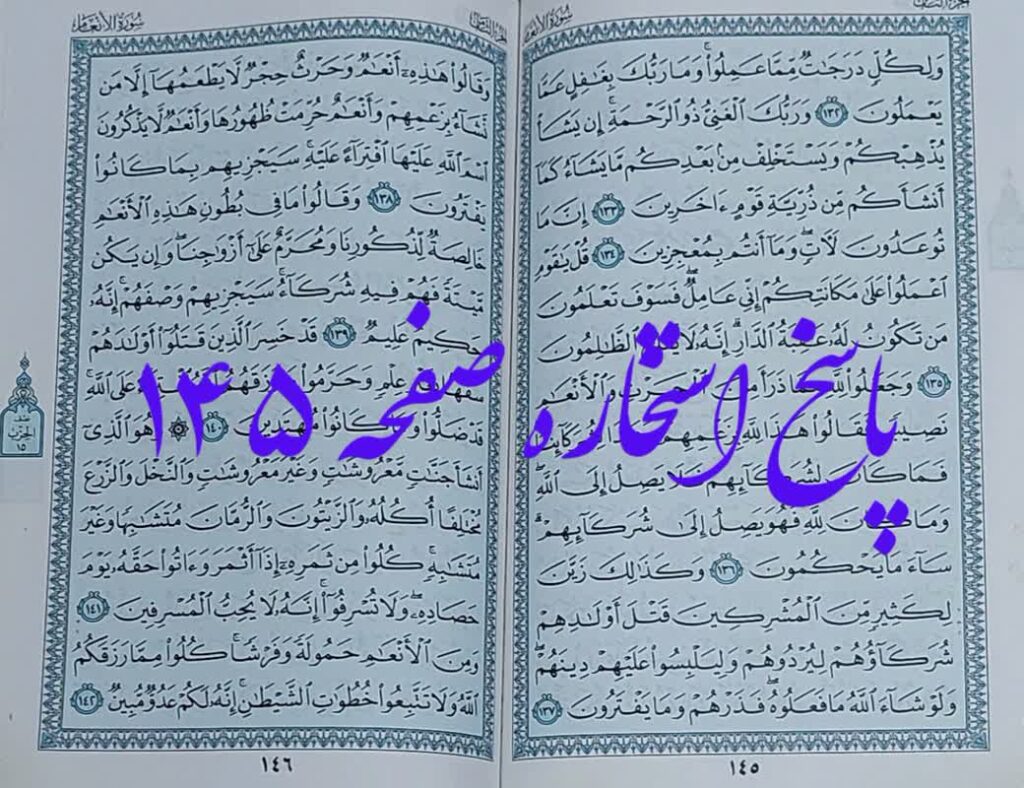 سورة الأنعام
وَلِكُلٍّ دَرَجَٰتٌ مِّمَّا عَمِلُوا۟ ۚ وَمَا رَبُّكَ بِغَٰفِلٍ عَمَّا
يَعْمَلُونَ ١٣٢ وَرَبُّكَ ٱلْغَنِىُّ ذُو ٱلرَّحْمَةِ ۚ إِن يَشَأْ
يُذْهِبْكُمْ وَيَسْتَخْلِفْ مِنۢ بَعْدِكُم مَّا يَشَآءُ كَمَآ
أَنشَأَكُم مِّن ذُرِّيَّةِ قَوْمٍ ءَاخَرِينَ ١٣٣ إِنَّ مَا
تُوعَدُونَ لَءَاتٍ ۖ وَمَآ أَنتُم بِمُعْجِزِينَ ١٣٤ قُلْ يَٰقَوْمِ
ٱعْمَلُوا۟ عَلَىٰ مَكَانَتِكُمْ إِنِّى عَامِلٌ ۖ فَسَوْفَ تَعْلَمُونَ
مَن تَكُونُ لَهُۥ عَٰقِبَةُ ٱلدَّارِ ۗ إِنَّهُۥ لَا يُفْلِحُ ٱلظَّٰلِمُونَ
١٣٥ وَجَعَلُوا۟ لِلَّهِ مِمَّا ذَرَأَ مِنَ ٱلْحَرْثِ وَٱلْأَنْعَٰمِ
نَصِيبًا فَقَالُوا۟ هَٰذَا لِلَّهِ بِزَعْمِهِمْ وَهَٰذَا لِشُرَكَآئِنَا ۖ
فَمَا كَانَ لِشُرَكَآئِهِمْ فَلَا يَصِلُ إِلَى ٱللَّهِ ۖ
وَمَا كَانَ لِلَّهِ فَهُوَ يَصِلُ إِلَىٰ شُرَكَآئِهِمْ ۗ
سَآءَ مَا يَحْكُمُونَ ١٣٦ وَكَذَٰلِكَ زَيَّنَ
لِكَثِيرٍ مِّنَ ٱلْمُشْرِكِينَ قَتْلَ أَوْلَٰدِهِمْ
شُرَكَآؤُهُمْ لِيُرْدُوهُمْ وَلِيَلْبِسُوا۟ عَلَيْهِمْ دِينَهُمْ ۖ
وَلَوْ شَآءَ ٱللَّهُ مَا فَعَلُوهُ ۖ فَذَرْهُمْ وَمَا يَفْتَرُونَ ١٣٧
١٤٥
سورة الأنعام
وَقَالُوا۟ هَٰذِهِۦٓ أَنْعَٰمٌ وَحَرْثٌ حِجْرٌ لَّا يَطْعَمُهَآ إِلَّا مَن
نَّشَآءُ بِزَعْمِهِمْ وَأَنْعَٰمٌ حُرِّمَتْ ظُهُورُهَا وَأَنْعَٰمٌ لَّا يَذْكُرُونَ
ٱسْمَ ٱللَّهِ عَلَيْهَا ٱفْتِرَآءً عَلَيْهِ ۚ سَيَجْزِيهِم بِمَا كَانُوا۟
يَفْتَرُونَ ١٣٨ وَقَالُوا۟ مَا فِى بُطُونِ هَٰذِهِ ٱلْأَنْعَٰمِ
خَالِصَةٌ لِّذُكُورِنَا وَمُحَرَّمٌ عَلَىٰٓ أَزْوَٰجِنَا ۖ وَإِن يَكُن
مَّيْتَةً فَهُمْ فِيهِ شُرَكَآءُ ۚ سَيَجْزِيهِمْ وَصْفَهُمْ ۚ إِنَّهُۥ
حَكِيمٌ عَلِيمٌ ١٣٩ قَدْ خَسِرَ ٱلَّذِينَ قَتَلُوٓا۟ أَوْلَٰدَهُمْ
سَفَهًۢا بِغَيْرِ عِلْمٍ وَحَرَّمُوا۟ مَا رَزَقَهُمُ ٱللَّهُ ٱفْتِرَآءً عَلَى ٱللَّهِ ۚ
قَدْ ضَلُّوا۟ وَمَا كَانُوا۟ مُهْتَدِينَ ١٤٠ ۞ وَهُوَ ٱلَّذِىٓ
أَنشَأَ جَنَّٰتٍ مَّعْرُوشَٰتٍ وَغَيْرَ مَعْرُوشَٰتٍ وَٱلنَّخْلَ وَٱلزَّرْعَ
مُخْتَلِفًا أُكُلُهُۥ وَٱلزَّيْتُونَ وَٱلرُّمَّانَ مُتَشَٰبِهًا وَغَيْرَ
مُتَشَٰبِهٍ ۚ كُلُوا۟ مِن ثَمَرِهِۦٓ إِذَآ أَثْمَرَ وَءَاتُوا۟ حَقَّهُۥ يَوْمَ
حَصَادِهِۦ ۖ وَلَا تُسْرِفُوٓا۟ ۚ إِنَّهُۥ لَا يُحِبُّ ٱلْمُسْرِفِينَ ١٤١
وَمِنَ ٱلْأَنْعَٰمِ حَمُولَةً وَفَرْشًا ۚ كُلُوا۟ مِمَّا رَزَقَكُمُ
ٱللَّهُ وَلَا تَتَّبِعُوا۟ خُطُوَٰتِ ٱلشَّيْطَٰنِ ۚ إِنَّهُۥ لَكُمْ عَدُوٌّ مُّبِينٌ ١٤٢
١٤٦
الحزب
١٥
پاسخ استخاره صفحه ۱۴۵